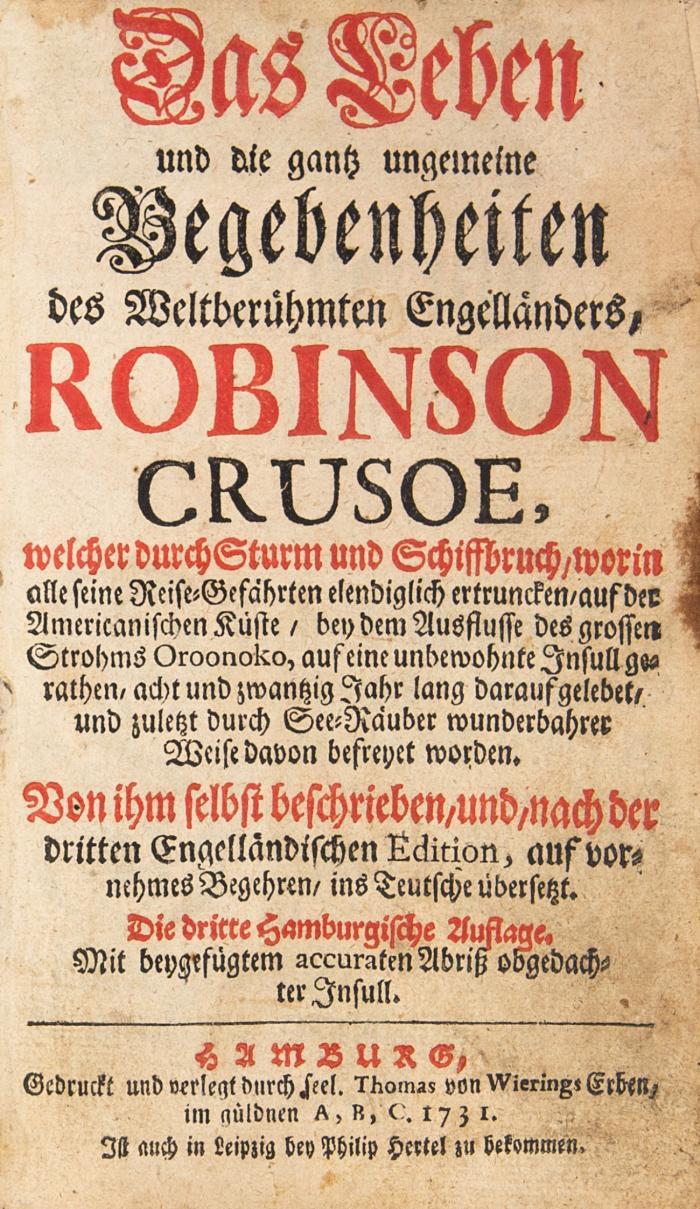 Das Leben
und die gantz ungemeine
Begebenheiten
des Weltberühmten Engelländers,
ROBINSON
CRUSOE,
welcher durch Sturm und Schiffbruch/ worin
alle seine Reise-Gefährten elendiglich ertruncken/ auf der
Americanischen Küste / bey dem Ausflusse des grossen
Strohms Oroonoko, auf eine unbewohnte Insull ge-
rathen/ acht und zwantzig Jahr lang darauf gelebet/
und zuletzt durch See-Räuber wunderbahrer
Weise davon befreyet worden.
Von ihm selbst beschrieben/ und/ nach der
dritten Engelländischen Edition, auf vor-
nehmes Begehren/ ins Teutsche übersetzt.
Die dritte Hamburgische Auflage.
Mit beygefügtem accuraten Abriß obgedach-
ter Insull.
HAMBURG,
Gedruckt und verlegt durch seel. Thomas von Wierings Erben,
im güldnen A, B, C. 1731.
Ist auch in Leipzig bey Philip Hertel zu bekommen.